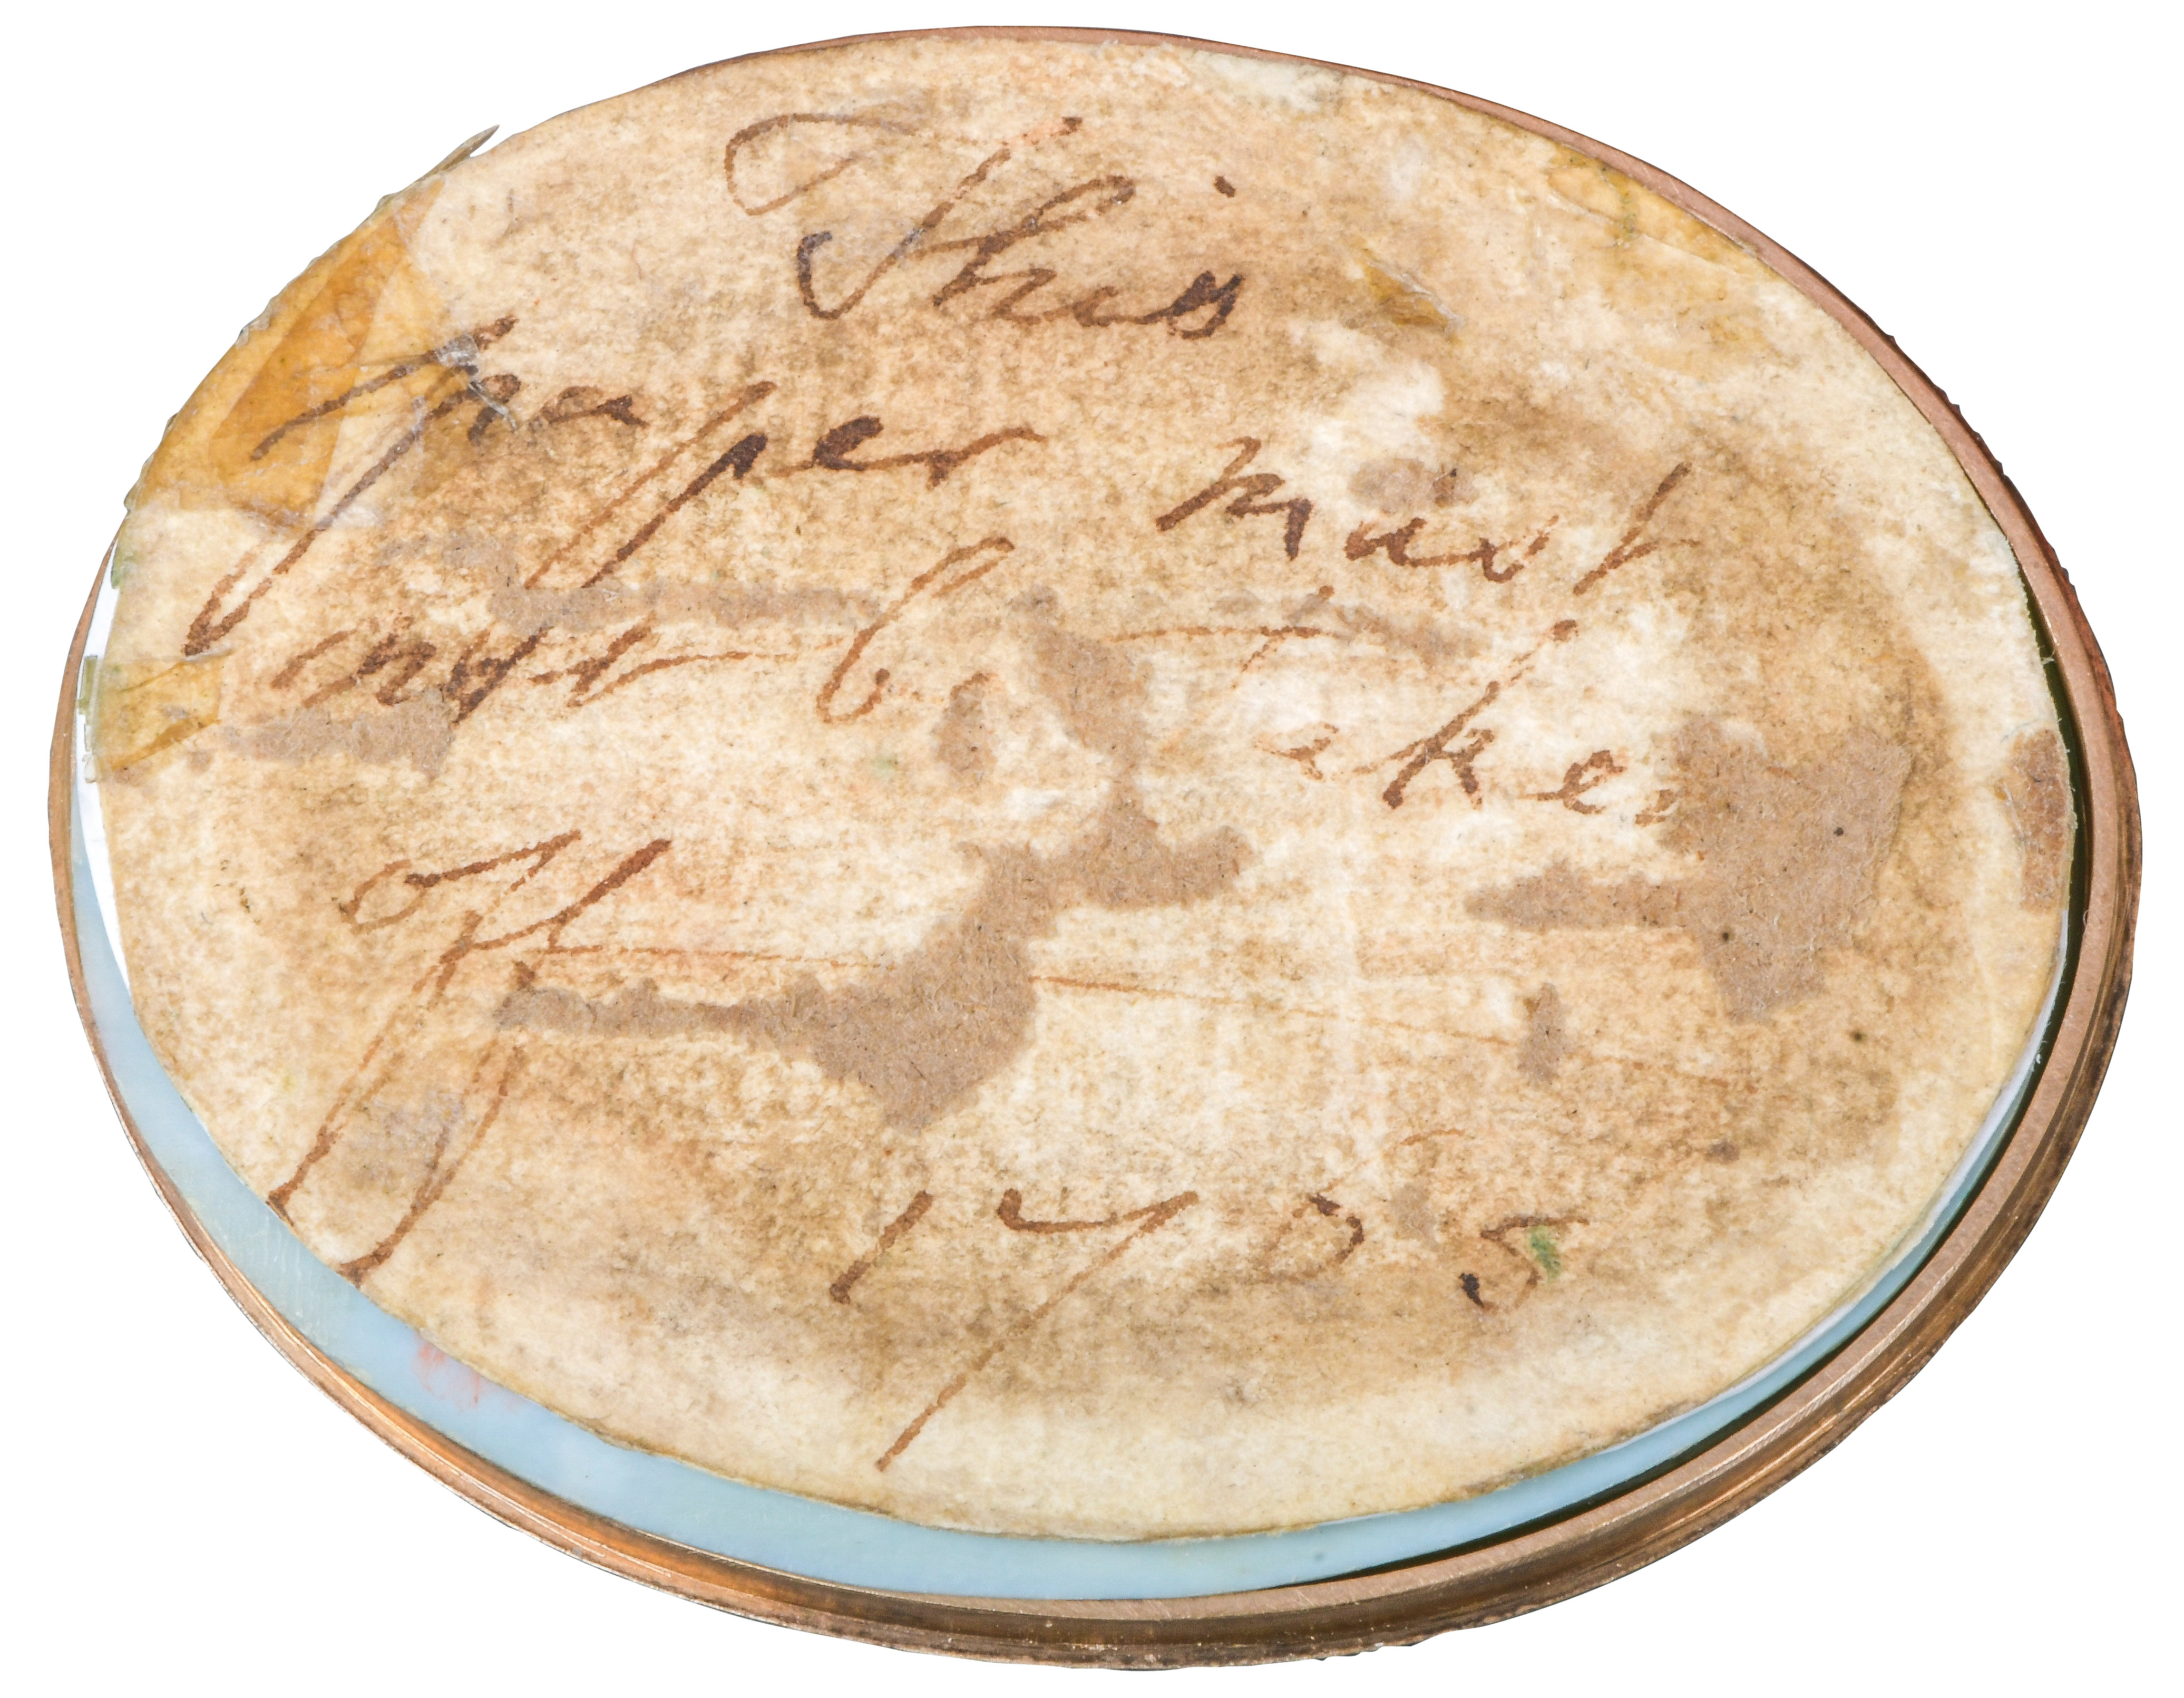 This
paper must
not be taken
off
1785